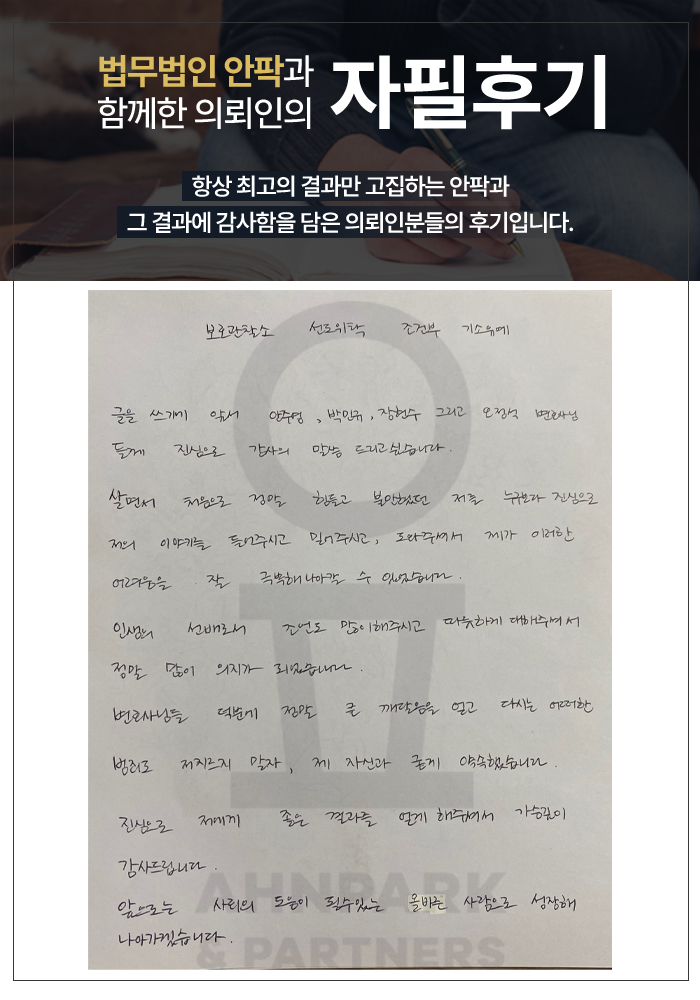 법무법인 안팍과
함께한 의뢰인의
자필후기
항상 최고의 결과만 고집하는 안팍과
그 결과에 감사함을 담은 의뢰인분들의 후기입니다.
보호관찰소 선도위탁 조건부 기소유예
글을 쓰기에 앞서 안주영, 박민규, 장현수 그리고 오정석 변호사님
들께 진심으로 감사의 말씀 드리고싶습니다.
살면서 처음으로 정말 힘들고 불안했던 저를 누구보다 진심으로
저의 이야기를 들어주시고 믿어주시고, 도와주셔서 제가 이러한
어려움을 잘 극복해나아갈 수 있었습니다.
인생의 선배로서 조언도 많이해주시고 따뜻하게 대해주셔서
정말 많이 의지가 되었습니다.
변호사님들 덕분에 정말 큰 깨달음을 얻고 다시는 어떠한
범죄도 저지르지 말자, 제 자신과 굳게 약속했습니다.
진심으로 저에게 좋은 결과를 얻게 해주셔서 가슴깊이
감사드립니다.
앞으로는 사회의 도움이 될수있는 올바른 사람으로 성장해
나아가겠습니다.
AHNPARK
& PARTNERS